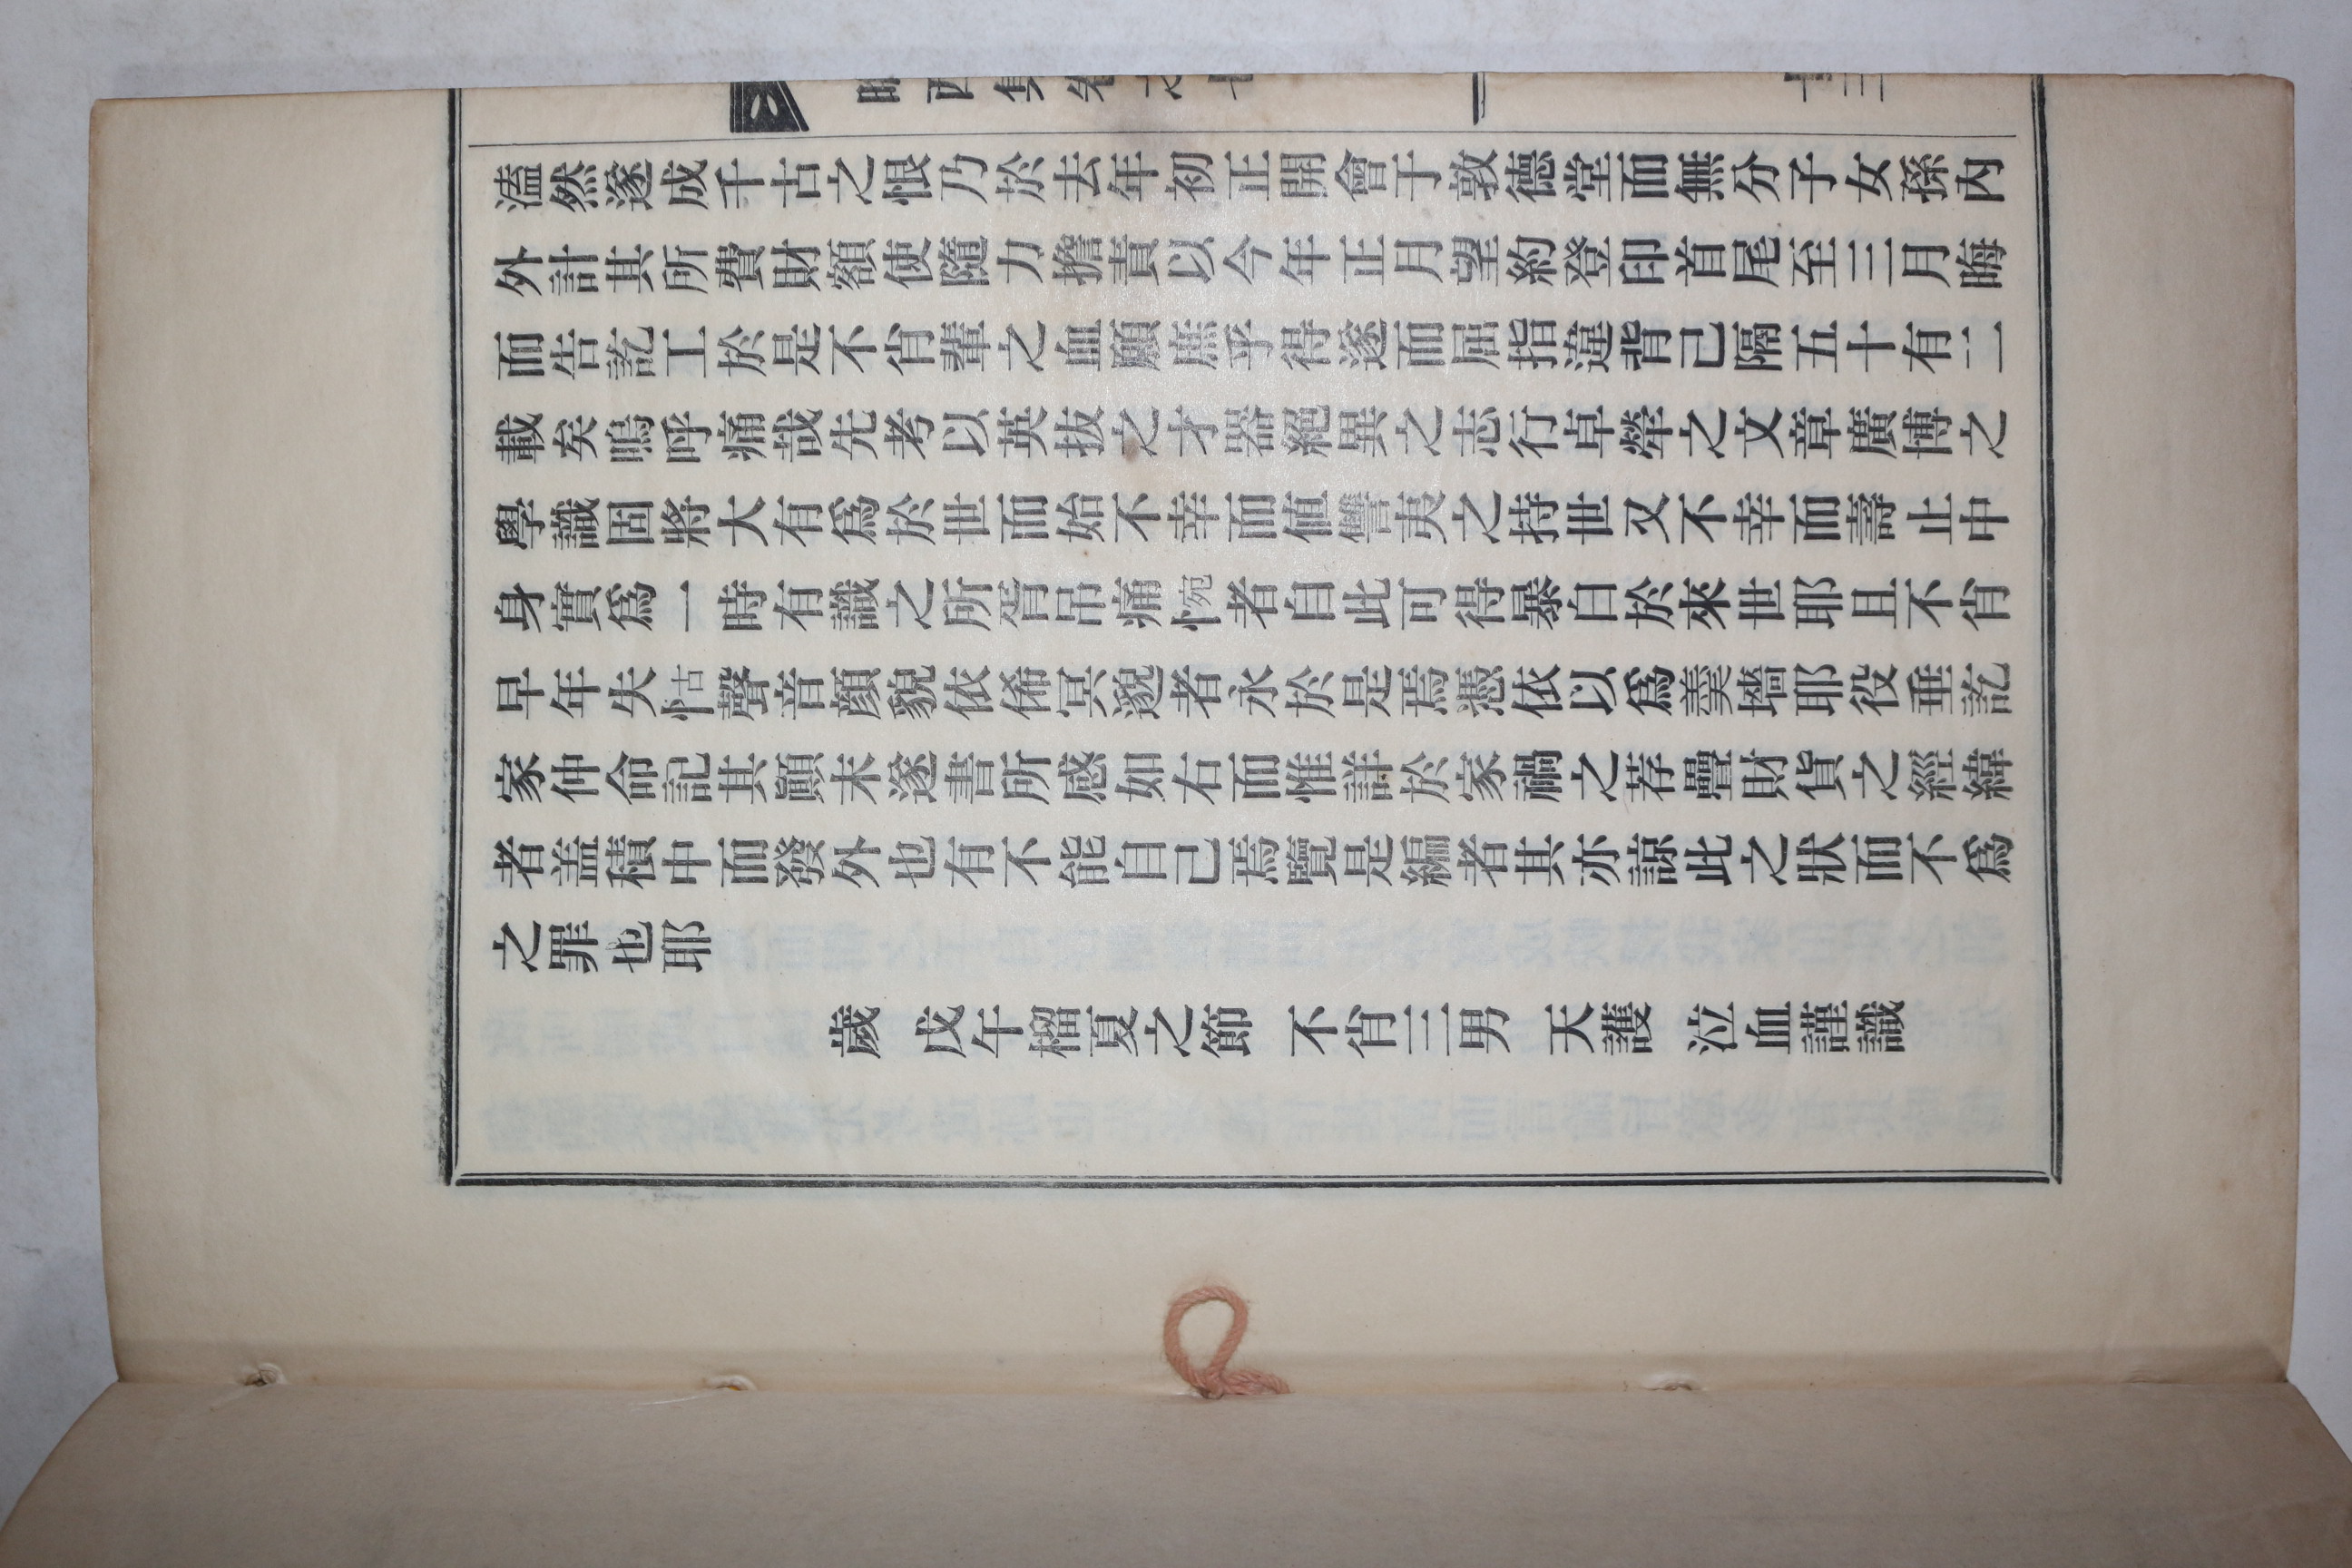 溘然遂成千古之恨乃於去年初正開會于敦德堂而無分子女孫內
外計其所費財額使隨力擔責以今年正月望約登印首尾至三月晦
而告訖工於是不肖輩之血願庶乎得遂而屈指違背己隔五十有二
載矣嗚呼痛哉先考以英抜之才器絕異之志行卓犖之文章廣博之
學識固將大有爲於世而始不幸而値讐夷之持世又不幸而壽止中
身實爲一時有識之所胥吊痛惋者自此可得暴白於來世耶且不肖
早年失怙聲音顔貌依俙冥邈者永於是焉憑依以爲羹墻耶役垂訖
家仲命記其顚末遂書所感如右而惟詳於家禍之荐疊財貨之經緯
者盖積中而發外也有不能自己焉覽是編者其亦諒此之狀而不爲
之罪也耶
歲 戊午榴夏之節 不肖三男 天護 泣血謹識
西集卷之七